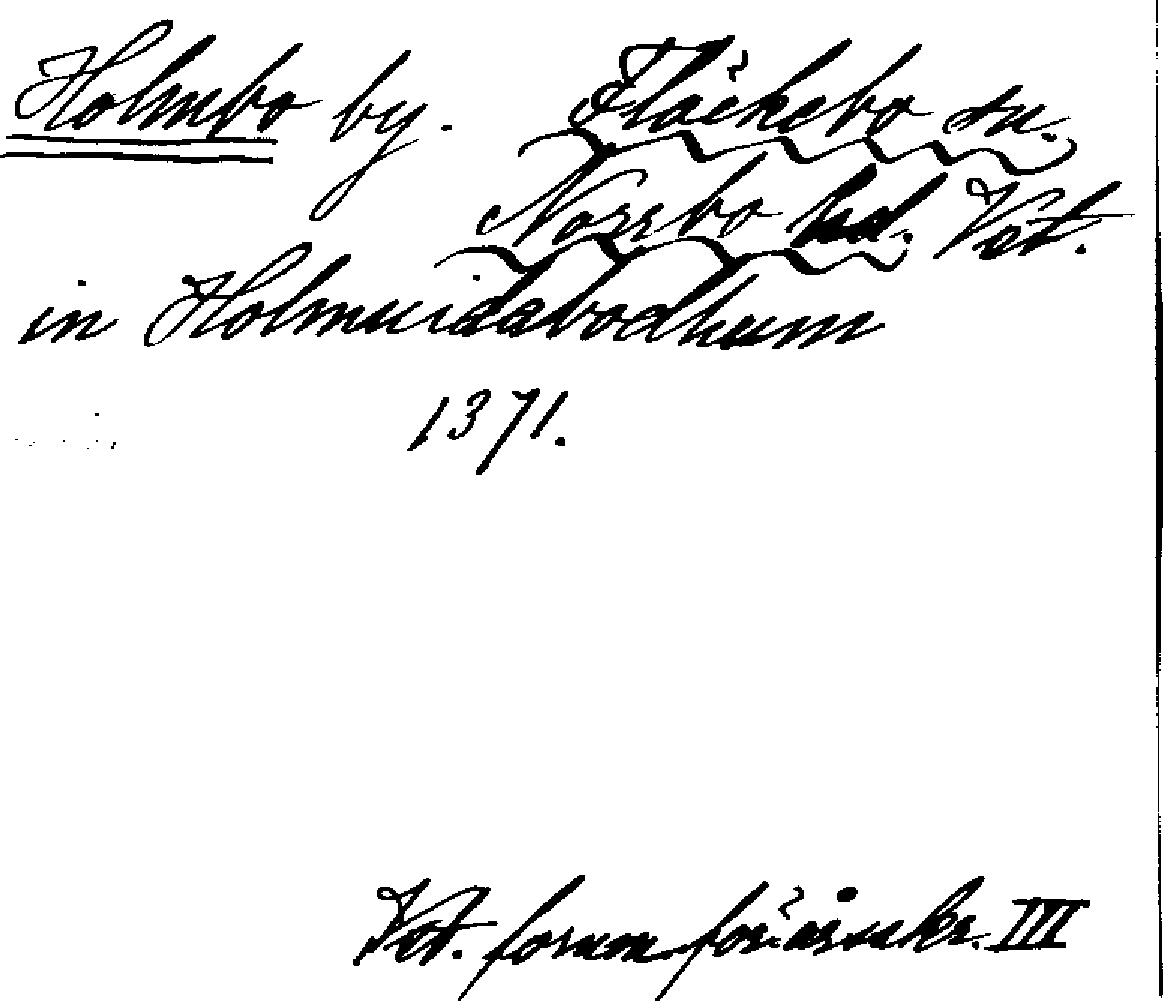 Holmbo by. Fläckebo sn.
Norrbo hd. Vst.
in Holmuidabodhum
1371.
Vst. fornm för:s årsskr. III